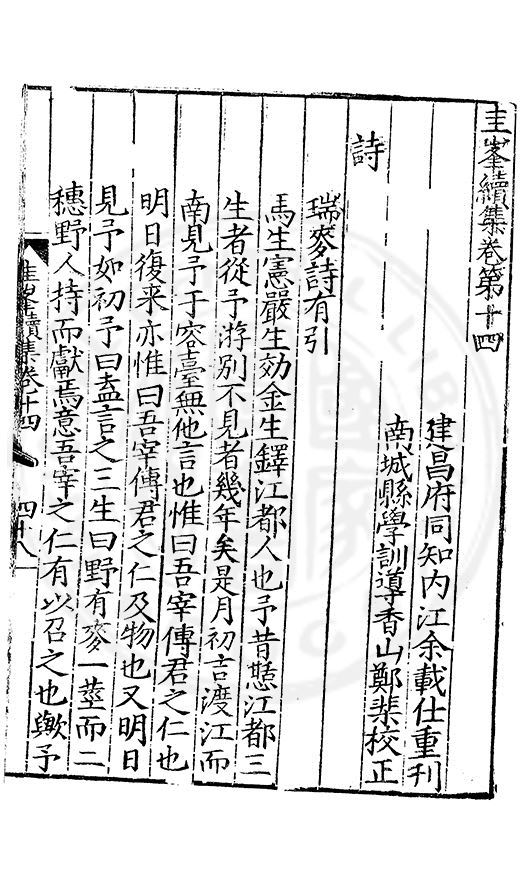 圭峯續集卷第十四
建昌府同知内江余載仕重刊
南城縣學訓導香山鄭棐校正
詩
瑞麥詩有引
馬生憲嚴生効金生鐸江都人也予昔憇江都三
生者從予游別不見者幾年矣是月初吉渡江而
南見予于容臺無他言也惟曰吾宰傅君之仁也
明日復来亦惟曰吾宰傅君之仁及物也又明日
見予如初予曰盍言之三生曰野有麥一莖而二
穗野人持而獻焉意吾宰之仁有以召之也歟予
圭峯續集卷十四
四十八